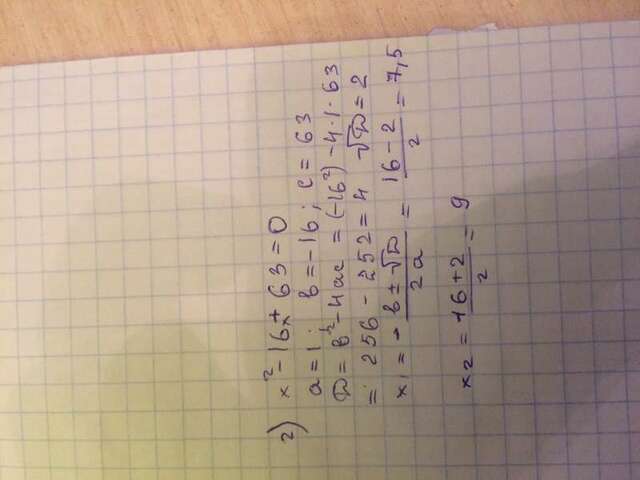 2) x² - 16x + 63 = 0
a = 1; в = -16; c = 63
D = в² - 4ac = (-16²) - 4·1·63
= 256 - 252 = 4 √D = 2
x₁ = -в ± √D / 2a = 16 - 2 / 2 = 7,5
x₂ = 16 + 2 / 2 = 9